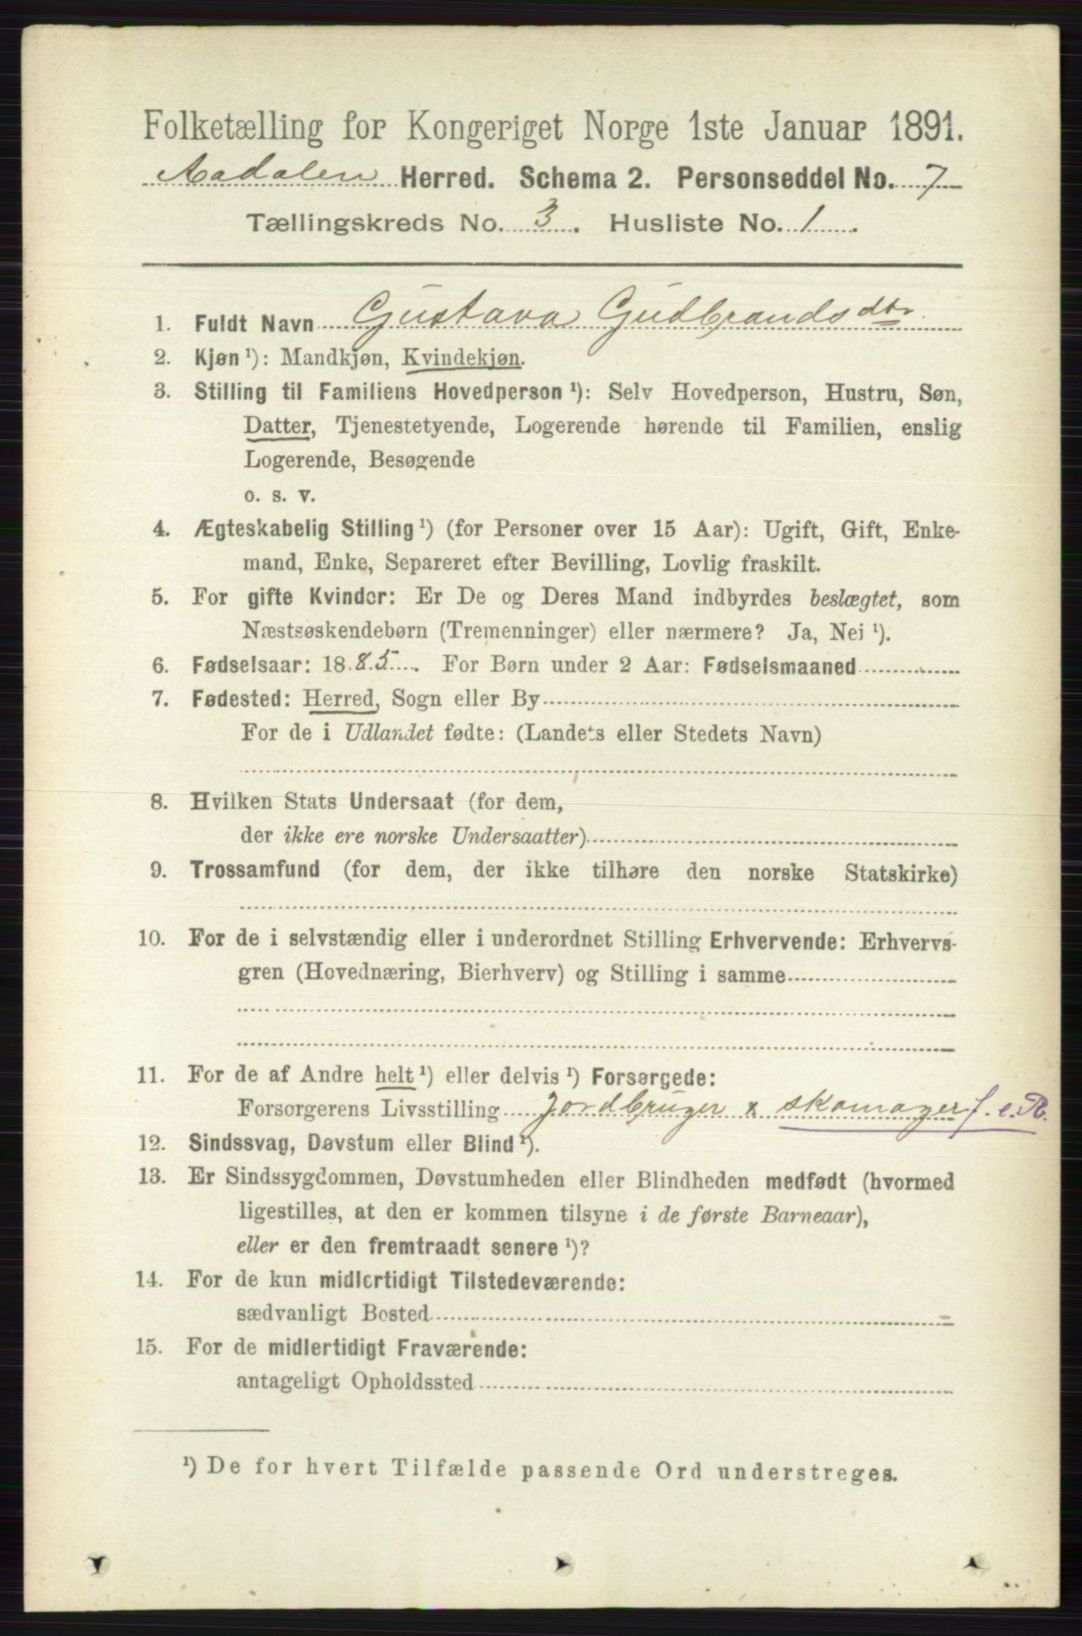 Folketælling for Kongeriget Norge 1ste Januar 1891.
Aadalen Herred. Schema 2. Personseddel No. 7
Tællingskreds No. 3. Husliste No. 1.
1. Fuldt Navn Gustava Gudbrandsdtr
2. Kjøn ¹): Mandkjøn, Kvindekjøn.
3. Stilling til Familiens Hovedperson ¹): Selv Hovedperson, Hustru, Søn,
Datter, Tjenestetyende, Logerende hørende til Familien, enslig
Logerende, Besøgende
o. s. v.
4. Ægteskabelig Stilling ¹) (for Personer over 15 Aar): Ugift, Gift, Enke-
mand, Enke, Separeret efter Bevilling, Lovlig fraskilt.
5. For gifte Kvinder: Er De og Deres Mand indbyrdes beslægtet, som
Næstsøskendebørn (Tremenninger) eller nærmere? Ja, Nei ¹).
6. Fødselsaar: 1885. For Børn under 2 Aar: Fødselsmaaned
7. Fødested: Herred, Sogn eller By
For de i Udlandet fødte: (Landets eller Stedets Navn)
8. Hvilken Stats Undersaat (for dem,
der ikke ere norske Undersaatter)
9. Trossamfund (for dem, der ikke tilhøre den norske Statskirke)
10. For de i selvstændig eller i underordnet Stilling Erhvervende: Erhvervs-
gren (Hovednæring, Bierhverv) og Stilling i samme
11. For de af Andre helt ¹) eller delvis ¹) Forsørgede:
Forsørgerens Livsstilling Jordbruger x skomager f. e. R.
12. Sindssvag, Døvstum eller Blind ¹).
13. Er Sindssygdommen, Døvstumheden eller Blindheden medfødt (hvormed
ligestilles, at den er kommen tilsyne i de første Barneaar),
eller er den fremtraadt senere ¹)?
14. For de kun midlertidigt Tilstedeværende:
sædvanligt Bosted
15. For de midlertidigt Fraværende:
antageligt Opholdssted
¹) De for hvert Tilfælde passende Ord understreges.